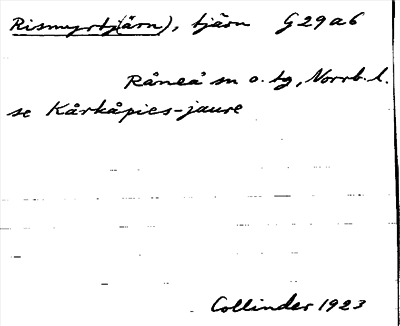 Rismyrtj(ärn), tjärn G29a6
Råneå sn o. tg, Norrb. l.
se Kårkåpies-jaure
Collinder 1923